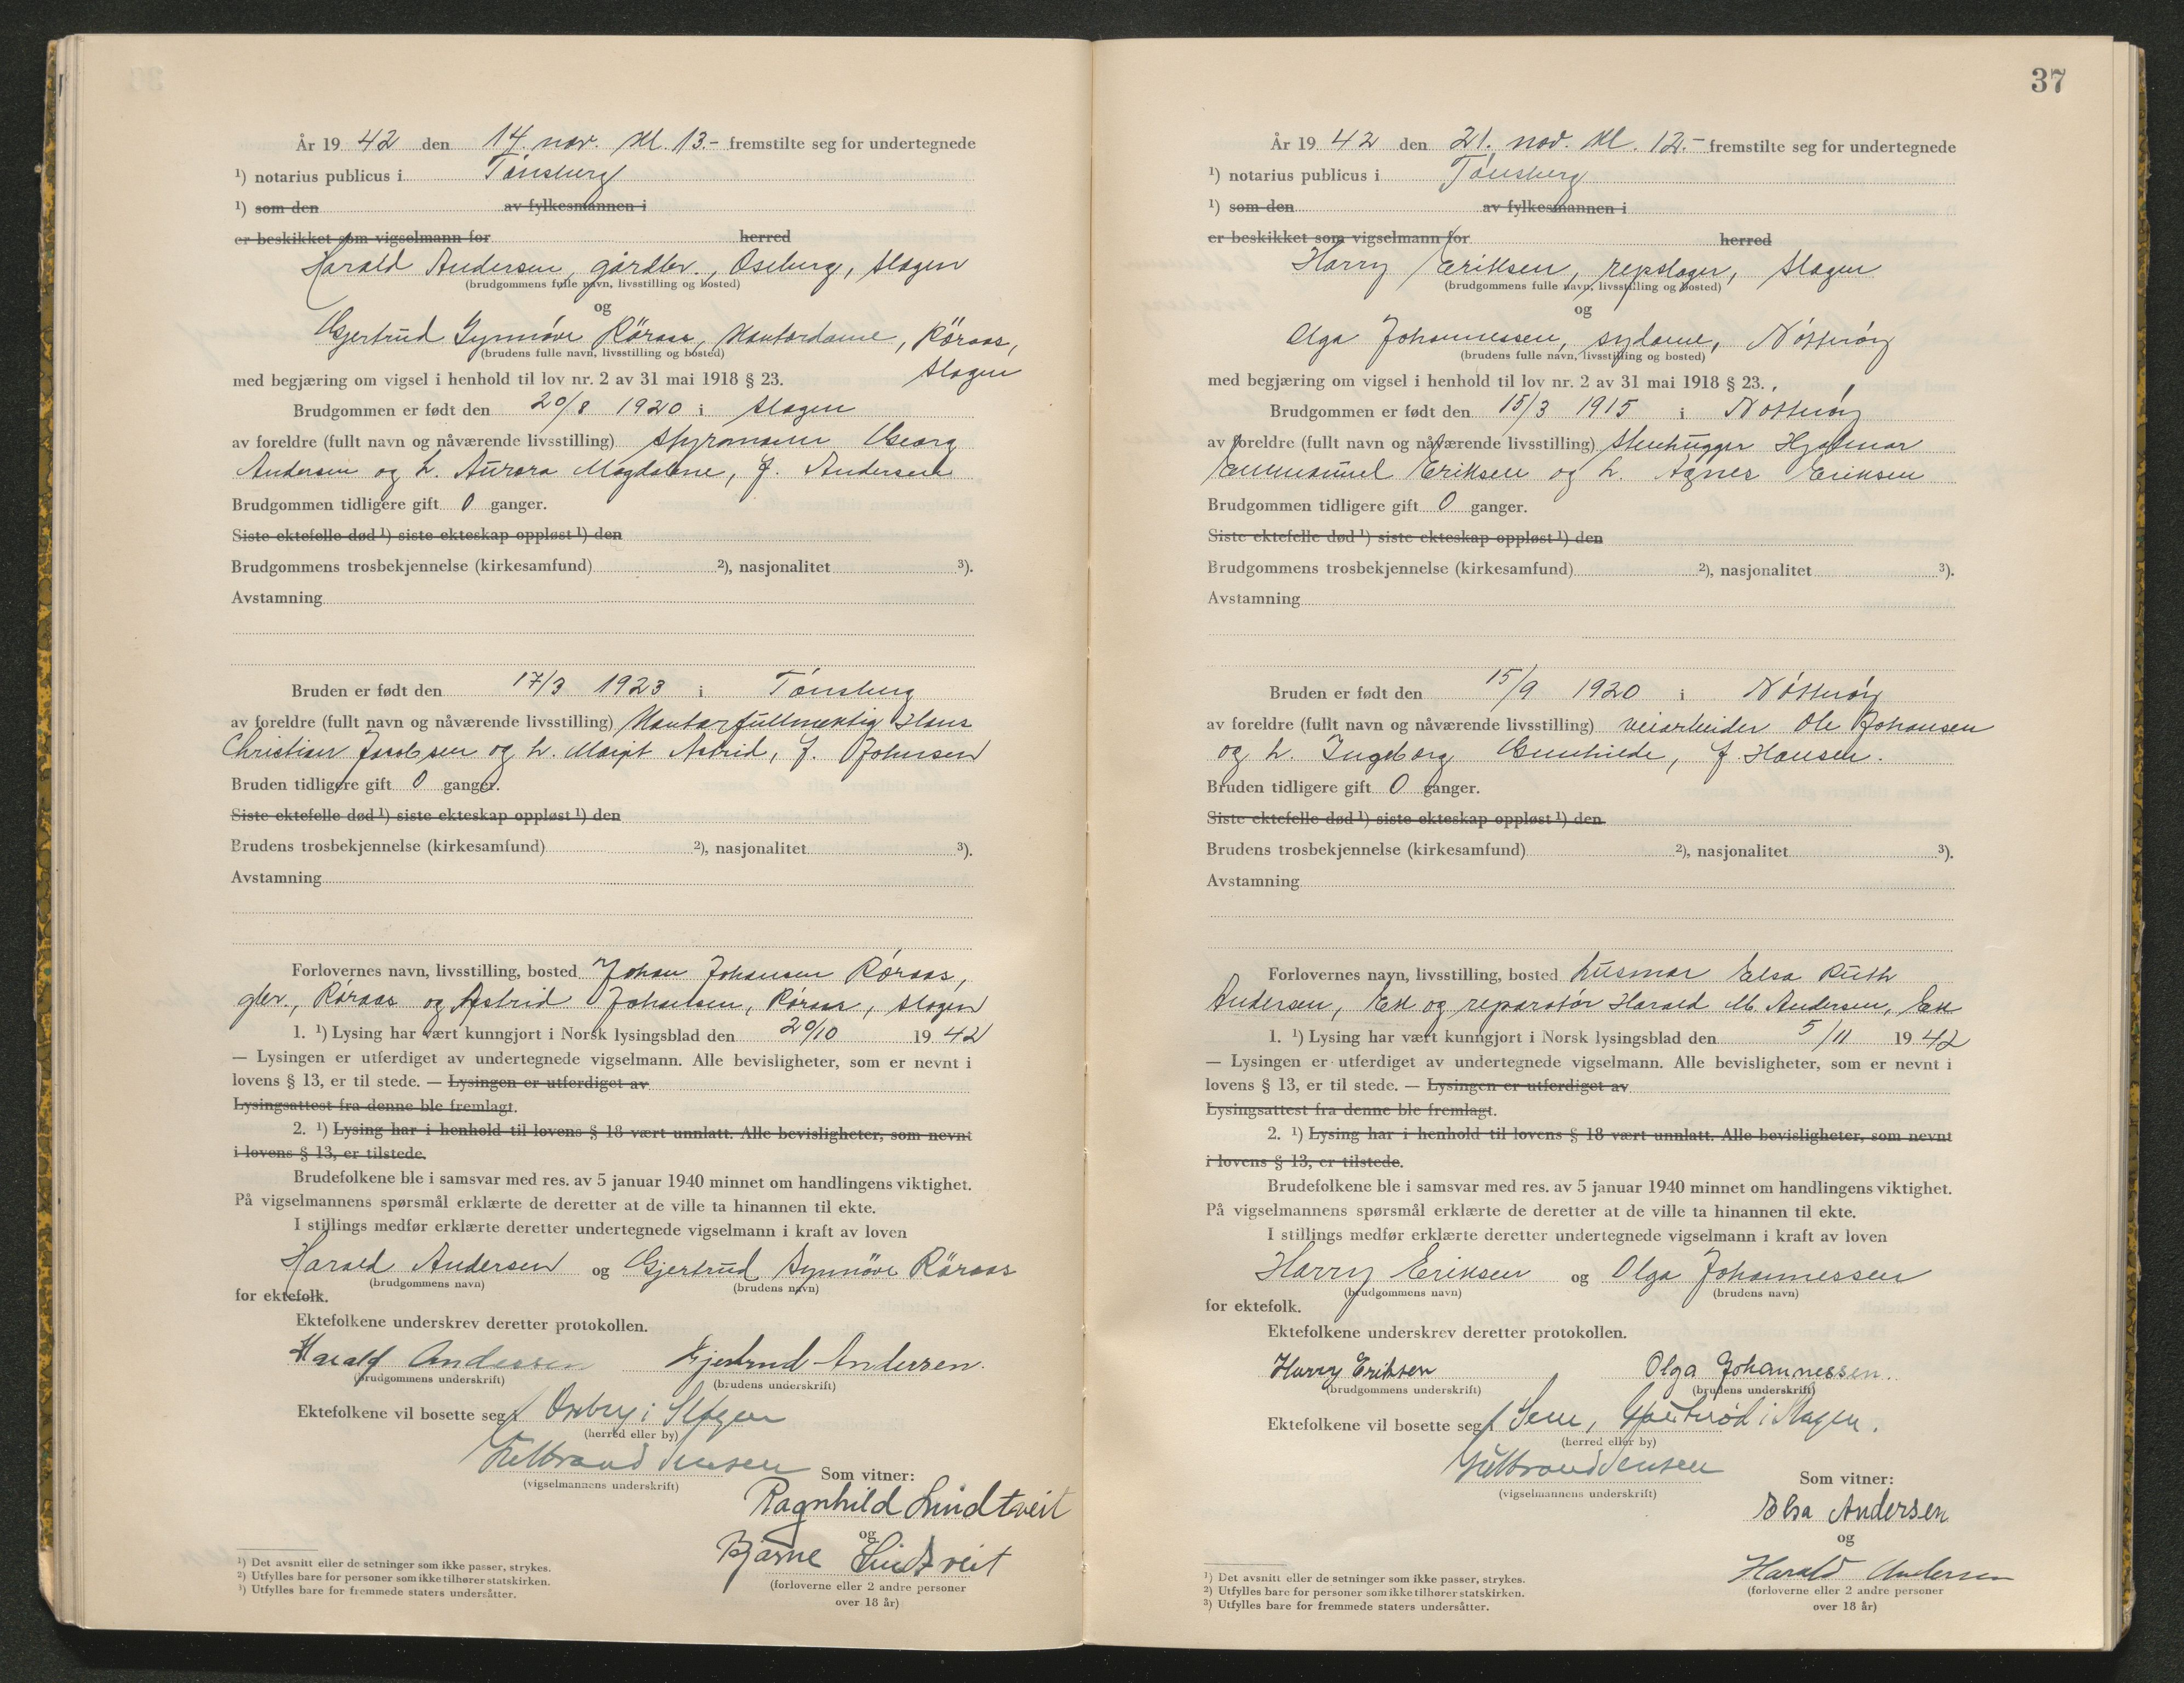 År 19 42 den 14. nov. kl. 13.- fremstilte seg for undertegnede
¹) notarius publicus i Tønsberg
¹) som den av fylkesmannen i
er beskikket som vigselmann for herred
Harald Andersen, gårdbr., Oseberg, Slagen
(brudgommens fulle navn, livsstilling og bosted)
og
Gjertrud Synnöve Röraas, kontordame, Röraas,
(brudens fulle navn, livsstilling og bosted)
Slagen
med begjæring om vigsel i henhold til lov nr. 2 av 31 mai 1918 § 23.
Brudgommen er født den 20/8 1920 i Slagen
av foreldre (fullt navn og nåværende livsstilling) styrmann Georg
Andersen og h. Aurora Magdalene, f. Andersen
Brudgommen tidligere gift 0 ganger.
Siste ektefelle død ¹) siste ekteskap oppløst ¹) den
Brudgommens trosbekjennelse (kirkesamfund) ²), nasjonalitet ³).
Avstamning
Bruden er født den 17/3 1923 i Tønsberg
av foreldre (fullt navn og nåværende livsstilling) kontorfullmektig Hans
Christian Jacobsen og h. Margit Astrid, f. Johnsen
Bruden tidligere gift 0 ganger.
Siste ektefelle død ¹) siste ekteskap oppløst ¹) den
Brudens trosbekjennelse (kirkesamfund) ²), nasjonalitet ³).
Avstamning
Forlovernes navn, livsstilling, bosted Johan Johansen Røraas,
gbr., Røraas og Astrid Johansen, Røraas, Slagen
1. ¹) Lysing har vært kunngjort i Norsk lysingsblad den 20/10 19 42
— Lysingen er utferdiget av undertegnede vigselmann. Alle bevisligheter, som er nevnt i
lovens § 13, er til stede. — Lysingen er utferdiget av
Lysingsattest fra denne ble fremlagt.
2. ¹) Lysing har i henhold til lovens § 18 vært unnlatt. Alle bevisligheter, som nevnt
i lovens § 13, er tilstede.
Brudefolkene ble i samsvar med res. av 5 januar 1940 minnet om handlingens viktighet.
På vigselmannens spørsmål erklærte de deretter at de ville ta hinannen til ekte.
I stillings medfør erklærte deretter undertegnede vigselmann i kraft av loven
Harald Andersen og Gjertrud Synnöve Röraas
(brudgommens navn) (brudens navn)
for ektefolk.
Ektefolkene underskrev deretter protokollen.
Harald Andersen Gjertrud Andersen.
(brudgommens underskrift) (brudens underskrift)
Ektefolkene vil bosette seg i Oseberg i Slagen
(herred eller by)
Gulbrand Jensen
(vigselmannens underskrift)
Som vitner:
Ragnhild Lindtveit
og
Bjarne Lindtveit
(forloverne eller 2 andre personer
over 18 år)
¹) Det avsnitt eller de setninger som ikke passer, strykes.
²) Utfylles bare for personer som ikke tilhører statskirken.
³) Utfylles bare for fremmede staters undersåtter.
37
År 19 42 den 21. nov. kl. 12.- fremstilte seg for undertegnede
¹) notarius publicus i Tønsberg
¹) som den av fylkesmannen i
er beskikket som vigselmann for herred
Harry Eriksen, repslager, Slagen
(brudgommens fulle navn, livsstilling og bosted)
og
Olga Johannessen, sydame, Nøtterøy
(brudens fulle navn, livsstilling og bosted)
med begjæring om vigsel i henhold til lov nr. 2 av 31 mai 1918 § 23.
Brudgommen er født den 15/3 1915 i Nøtterøy
av foreldre (fullt navn og nåværende livsstilling) stenhugger Hjalmar
Emmanuel Eriksen og h. Agnes Eriksen
Brudgommen tidligere gift 0 ganger.
Siste ektefelle død ¹) siste ekteskap oppløst ¹) den
Brudgommens trosbekjennelse (kirkesamfund) ²), nasjonalitet ³).
Avstamning
Bruden er født den 15/9 1920 i Nøtterøy
av foreldre (fullt navn og nåværende livsstilling) veiarbeider Ole Johansen
og h. Ingeborg Gunhilde, f. Hansen.
Bruden tidligere gift 0 ganger.
Siste ektefelle død ¹) siste ekteskap oppløst ¹) den
Brudens trosbekjennelse (kirkesamfund) ²), nasjonalitet ³).
Avstamning
Forlovernes navn, livsstilling, bosted husmor Elsa Ruth
Andersen, Ek og reparatør Harald M. Andersen, Ek
1. ¹) Lysing har vært kunngjort i Norsk lysingsblad den 5/11 19 42
— Lysingen er utferdiget av undertegnede vigselmann. Alle bevisligheter, som er nevnt i
lovens § 13, er til stede. — Lysingen er utferdiget av
Lysingsattest fra denne ble fremlagt.
2. ¹) Lysing har i henhold til lovens § 18 vært unnlatt. Alle bevisligheter, som nevnt
i lovens § 13, er tilstede.
Brudefolkene ble i samsvar med res. av 5 januar 1940 minnet om handlingens viktighet.
På vigselmannens spørsmål erklærte de deretter at de ville ta hinannen til ekte.
I stillings medfør erklærte deretter undertegnede vigselmann i kraft av loven
Harry Eriksen og Olga Johannessen
(brudgommens navn) (brudens navn)
for ektefolk.
Ektefolkene underskrev deretter protokollen.
Harry Eriksen Olga Johannessen.
(brudgommens underskrift) (brudens underskrift)
Ektefolkene vil bosette seg i Sem, i Slagen.
(herred eller by)
Gulbrand Jensen
(vigselmannens underskrift)
Som vitner:
Elsa Andersen
og
Harald Andersen
(forloverne eller 2 andre personer
over 18 år)
¹) Det avsnitt eller de setninger som ikke passer, strykes.
²) Utfylles bare for personer som ikke tilhører statskirken.
³) Utfylles bare for fremmede staters undersåtter.